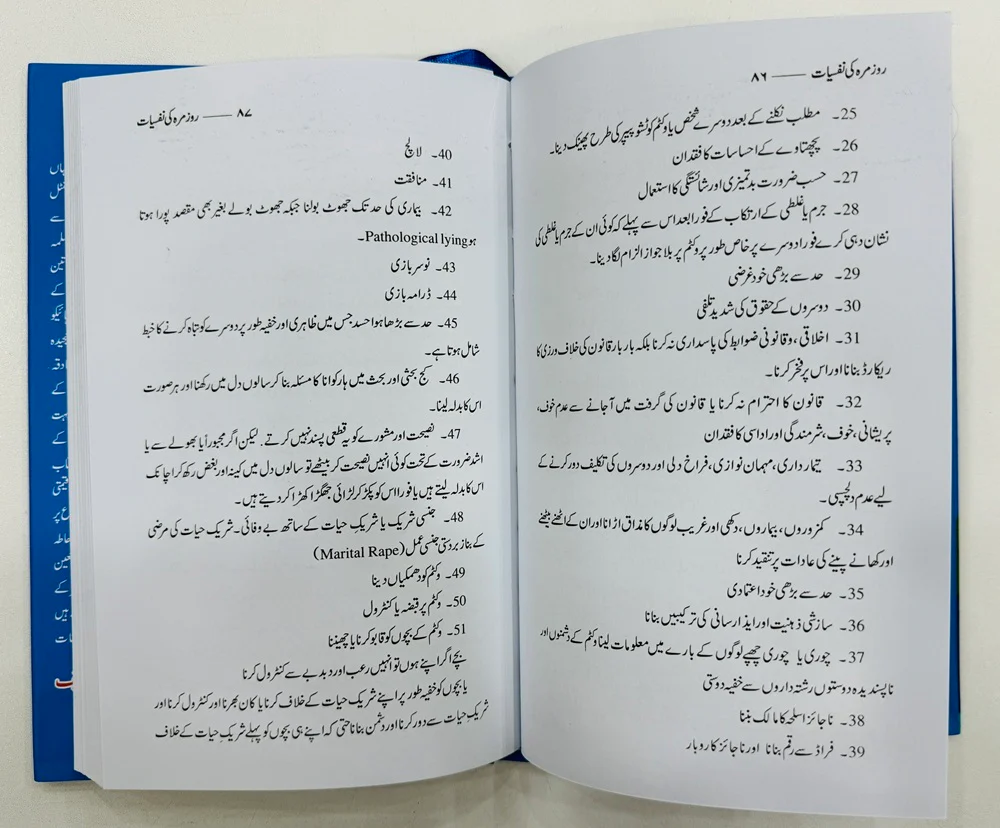 روزمرہ کی نفسیات —— ۸۶
25۔ مطلب نکلنے کے بعد دوسرے شخص یا وکٹم کو ٹشو پیپر کی طرح پھینک دینا۔
26۔ پچھتاوے کے احساسات کا فقدان
27۔ حسب ضرورت بدتمیزی اور شائستگی کا استعمال
28۔ جرم یا غلطی کے ارتکاب کے فوراً بعد اس سے پہلے کہ کوئی ان کے جرم یا غلطی کی
نشان دہی کرے فوراً دوسرے پر خاص طور پر وکٹم پر بلا جواز الزام لگا دینا۔
29۔ حد سے بڑھی خود غرضی
30۔ دوسروں کے حقوق کی شدید تلفی
31۔ اخلاقی، وقانونی ضوابط کی پاسداری نہ کرنا بلکہ بار بار قانون کی خلاف ورزی کا
ریکارڈ بنانا اور اس پر فخر کرنا۔
32۔ قانون کا احترام نہ کرنا یا قانون کی گرفت میں آجانے سے عدم خوف،
پریشانی، خوف، شرمندگی اور اداسی کا فقدان
33۔ تیمارداری، مہمان نوازی، فراخ دلی اور دوسروں کی تکلیف دور کرنے کے
لیے عدم دلچسپی۔
34۔ کمزوروں، بیماروں، دکھی اور غریب لوگوں کا مذاق اڑانا اور ان کے اٹھنے بیٹھنے
اور کھانے پینے کی عادات پر تنقید کرنا
35۔ حد سے بڑھی خود اعتمادی
36۔ سازشی ذہنیت اور ایذا رسانی کی ترکیبیں بنانا
37۔ چوری یا چوری چھپے لوگوں کے بارے میں معلومات لینا وکٹم کے دشمنوں اور
ناپسندیدہ دوستوں رشتہ داروں سے خفیہ دوستی
38۔ ناجائز اسلحہ کا مالک بننا
39۔ فراڈ سے رقم بنانا اور ناجائز کاروبار
۸۷ —— روزمرہ کی نفسیات
40۔ لالچ
41۔ منافقت
42۔ بیماری کی حد تک جھوٹ بولنا جبکہ جھوٹ بولے بغیر بھی مقصد پورا ہوتا
ہو Pathological lying۔
43۔ نوسر بازی
44۔ ڈرامہ بازی
45۔ حد سے بڑھا ہوا حسد جس میں ظاہری اور خفیہ طور پر دوسرے کو تباہ کرنے کا خبط
شامل ہوتا ہے۔
46۔ کج بحثی اور بحث میں ہار کو انا کا مسئلہ بنا کر سالوں دل میں رکھنا اور ہر صورت
اس کا بدلہ لینا۔
47۔ نصیحت اور مشورے کو یہ قطعی پسند نہیں کرتے۔ لیکن اگر مجبوراً یا بھولے سے یا
اشد ضرورت کے تحت کوئی انہیں نصیحت کر بیٹھے تو سالوں دل میں کینہ اور بغض رکھ کر اچانک
اس کا بدلہ لیتے ہیں یا فوراً اس کو پکڑ کر لڑائی جھگڑا کھڑا کر دیتے ہیں۔
48۔ جنسی شریک یا شریک حیات کے ساتھ بے وفائی۔ شریک حیات کی مرضی
کے بنا زبردستی جنسی عمل (Marital Rape)
49۔ وکٹم کو دھمکیاں دینا
50۔ وکٹم پر قبضہ یا کنٹرول
51۔ وکٹم کے بچوں کو قابو کرنا یا چھیننا
بچے اگر اپنے ہوں تو انہیں رعب اور دبدبے سے کنٹرول کرنا
یا بچوں کو خفیہ طور پر اپنے شریک حیات کے خلاف کرنا یا کان بھرنا اور کنٹرول کرنا اور
شریک حیات سے دور کرنا اور دشمن بنانا حتی کہ اپنے ہی بچوں کو پہلے شریک حیات کے خلاف